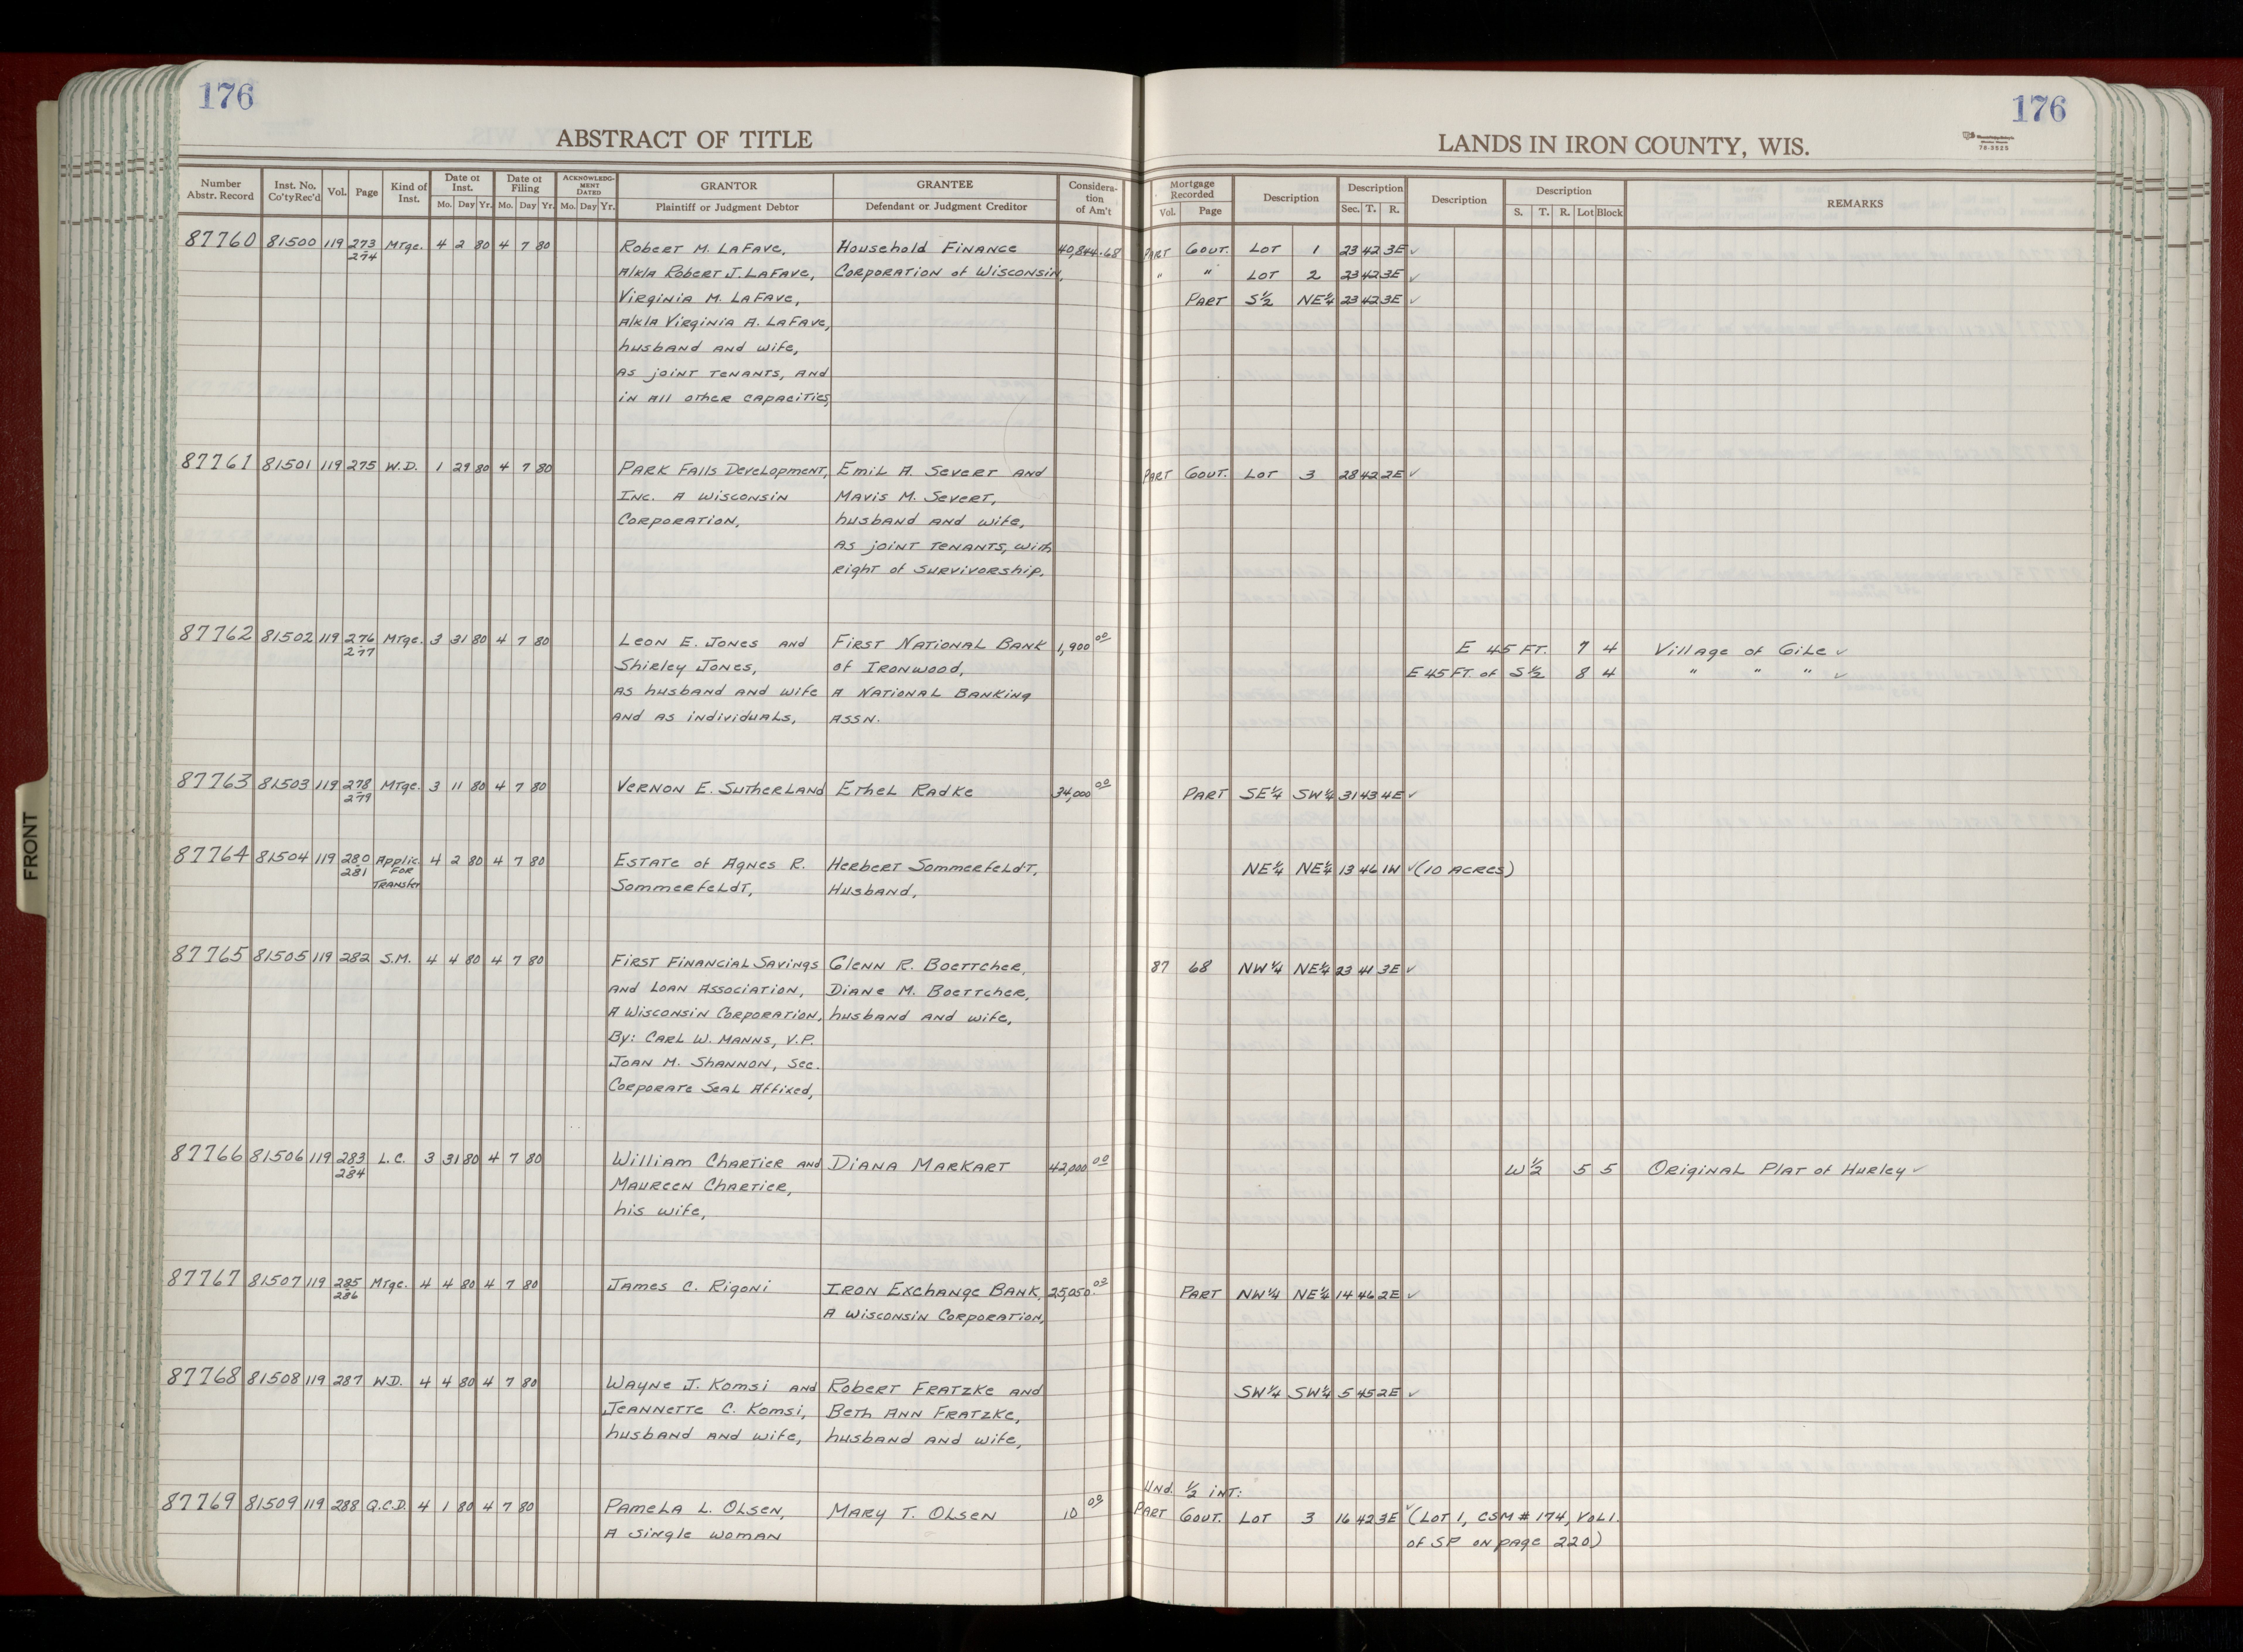 176
176
ABSTRACT OF TITLE
LANDS IN IRON COUNTY, WIS.
78-3525
Number Abstr. Record | Inst. No. Co'ty Rec'd | Vol. | Page | Kind of Inst. | Date of Inst. Mo. Day Yr. | Date of Filing Mo. Day Yr. | ACKNOWLEDGMENT DATED Mo. Day Yr. | GRANTOR Plaintiff or Judgment Debtor | GRANTEE Defendant or Judgment Creditor | Consideration of Am't | Mortgage Recorded Vol. Page | Description | Description Sec. T. R. | Description | Description S. T. R. Lot Block | REMARKS
87760 81500 119 273 Mtge. 4 2 80 4 7 80 Robert M. LaFave, Household Finance 40,844.68 PART Gout. Lot 1 23 42 3E ✓
274 A/k/a Robert J. LaFave, Corporation of Wisconsin, " " Lot 2 23 42 3E ✓
Virginia M. LaFave, PART S½ NE¼ 23 42 3E ✓
A/k/a Virginia A. LaFave,
husband and wife,
as joint tenants, and
in all other capacities,
87761 81501 119 275 W.D. 1 29 80 4 7 80 Park Falls Development, Emil A. Severt and PART Gout. Lot 3 28 42 2E ✓
Inc. A Wisconsin Mavis M. Severt,
Corporation, husband and wife,
as joint tenants, with
right of survivorship.
87762 81502 119 276 Mtge. 3 31 80 4 7 80 Leon E. Jones and First National Bank 1,900.00 E 45 FT. 7 4 Village of Gile ✓
277 Shirley Jones, of Ironwood, E 45 FT. of S½ 8 4 " " " ✓
as husband and wife A National Banking
and as individuals, Assn.
87763 81503 119 278 Mtge. 3 11 80 4 7 80 Vernon E. Sutherland Ethel Radke 34,000.00 PART SE¼ SW¼ 31 43 4E ✓
279
87764 81504 119 280 Applic. 4 2 80 4 7 80 Estate of Agnes R. Herbert Sommerfeldt, NE¼ NE¼ 13 46 1W ✓ (10 ACRES)
281 FOR Sommerfeldt, Husband,
Transfer
87765 81505 119 282 S.M. 4 4 80 4 7 80 First Financial Savings Glenn R. Boettcher, 87 68 NW¼ NE¼ 23 41 3E ✓
and Loan Association, Diane M. Boettcher,
A Wisconsin Corporation, husband and wife,
By: Carl W. Manns, V.P.
Joan M. Shannon, Sec.
Corporate Seal Affixed,
87766 81506 119 283 L.C. 3 31 80 4 7 80 William Chartier and Diana Markart 42,000.00 W½ 5 5 Original Plat of Hurley ✓
284 Maureen Chartier,
his wife,
87767 81507 119 285 Mtge. 4 4 80 4 7 80 James C. Rigoni Iron Exchange Bank, 25,050.03 PART NW¼ NE¼ 14 46 2E ✓
286 A Wisconsin Corporation,
87768 81508 119 287 W.D. 4 4 80 4 7 80 Wayne J. Komsi and Robert Fratzke and SW¼ SW¼ 5 45 2E ✓
Jeannette C. Komsi, Beth Ann Fratzke,
husband and wife, husband and wife,
Und. ½ int:
87769 81509 119 288 Q.C.D. 4 1 80 4 7 80 Pamela L. Olsen, Mary T. Olsen 10.00 PART Gout. Lot 3 16 42 3E ✓ (Lot 1, CSM # 174, Vol 1.
A single woman of SP on page 220)
FRONT